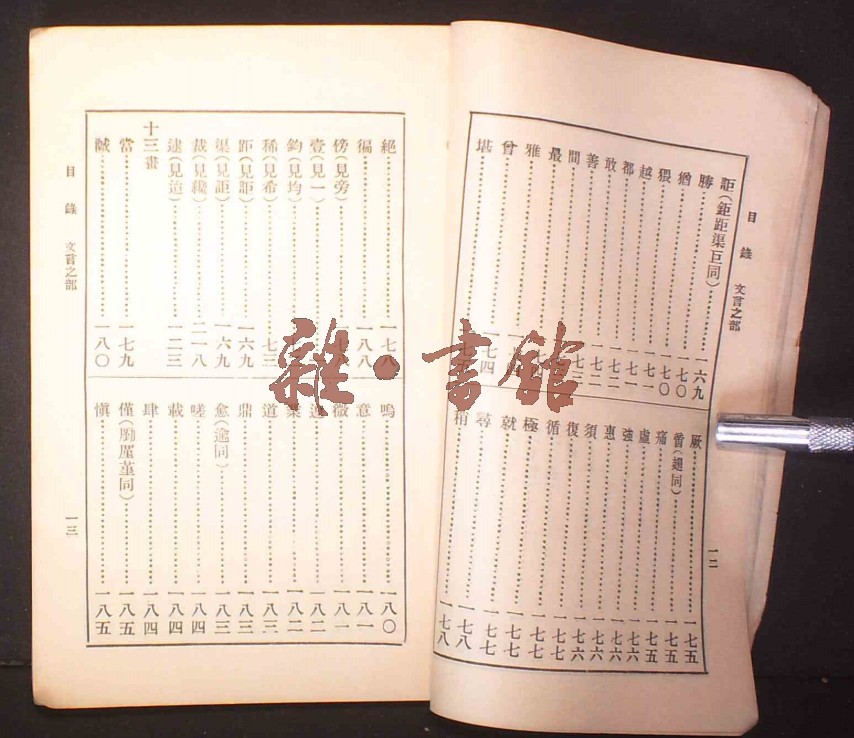 目錄 文言之部
詎(鉅距渠巨同)……一六九
勝……一七〇
猶……一七〇
猥……一七一
越……一七一
都……一七二
敢……一七二
善……一七三
間
最
雅
曾……一七四
堪
厥……一七五
嘗(趙同)……一七五
痛……一七五
虛……一七六
強……一七六
惠……一七六
須……一七六
復……一七七
循……一七七
極……一七七
就……一七七
尋……一七八
稍……一七八
一二
絕……一七八
徧……一八八
傍(見旁)
壹(見一)
鈞(見均)
稀(見希)……七三
距(見詎)……一六九
渠(見詎)……一六九
裁(見纔)……二一八
逮(見迨)……一二三
十三畫
當……一七九
誠……一八〇
嗚……一八〇
意……一八一
微……一八一
業……一八二
道……一八三
鼎……一八三
愈(逾同)……一八三
嗟……一八四
載……一八四
肆……一八四
僅(勵廑堇同)……一八五
愼……一八五
目錄 文言之部
一三
雜·書館